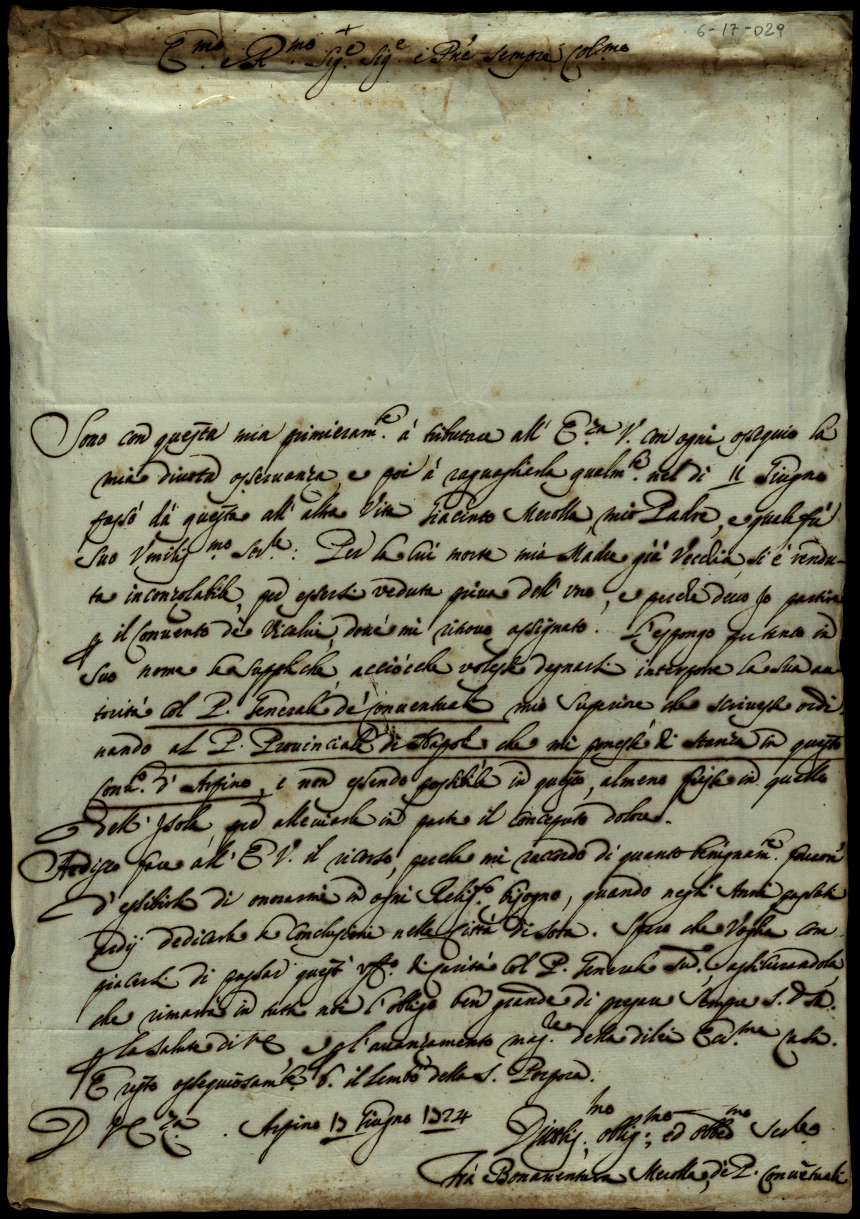 6-17-029
+
E.mo e R.mo Sig.e Sig.e e Pñe sempre Col.mo
Sono con questa mia primieram.te à tributare all' E.za V. con ogni ossequio la
mia divota osservanza, e poi à raguagliarla qualm.te nel dì 11 Giugno
passò da questa all' altra Vita Giacinto Merolla mio Padre, e qual fù
suo Umiliss.mo Ser.re: Per la cui morte mia Madre già Vecchia si è rendu-
ta inconzolabile, per essersi veduta priva dell' uno, e perche devo Jo partire
p il Convento di dove mi ritrovo assignato. L'espongo pertanto in
suo nome le suppliche, acciòcche volesse degnarsi interpore la sua au
torità col P. Generale de Conventuali mio Superiore che scrivesse ordi
nando al P. Provinciale di Napoli che mi ponesse di stanza in questo
Conv.o d' Arpino, e non essendo possibile in questo, almeno fusse in quello
dell' Jsola, per alleviarle in parte il conceputo dolore.
Ardisco fare all' E. V. il ricorso, perche mi raccordo di quanto benignam.te
d'essibirsi di onorarmi in ogni bisogno, quando negli Anni passati
dedicarle le Conclusioni nella Città di Sora. Spero che Voglia com
piacersi di passar quest' uff.o di carità col P. Generale sud.o assicurandola
che rimarrà in tutti noi l'obligo ben grande di pregare sempre S. D. M.
p la salute di V.E. e p l'avanzamento mag.re della dilei Ecc.ma Casa.
E resto ossequiosam.te b. il lembo della S. Porpora.
D V.E.za. Arpino 13 Giugno 1724
Divotiss.mo, obblig.mo, ed obbed.mo Ser.re
Frà Bonaventura Merolla, de P. Conventuali